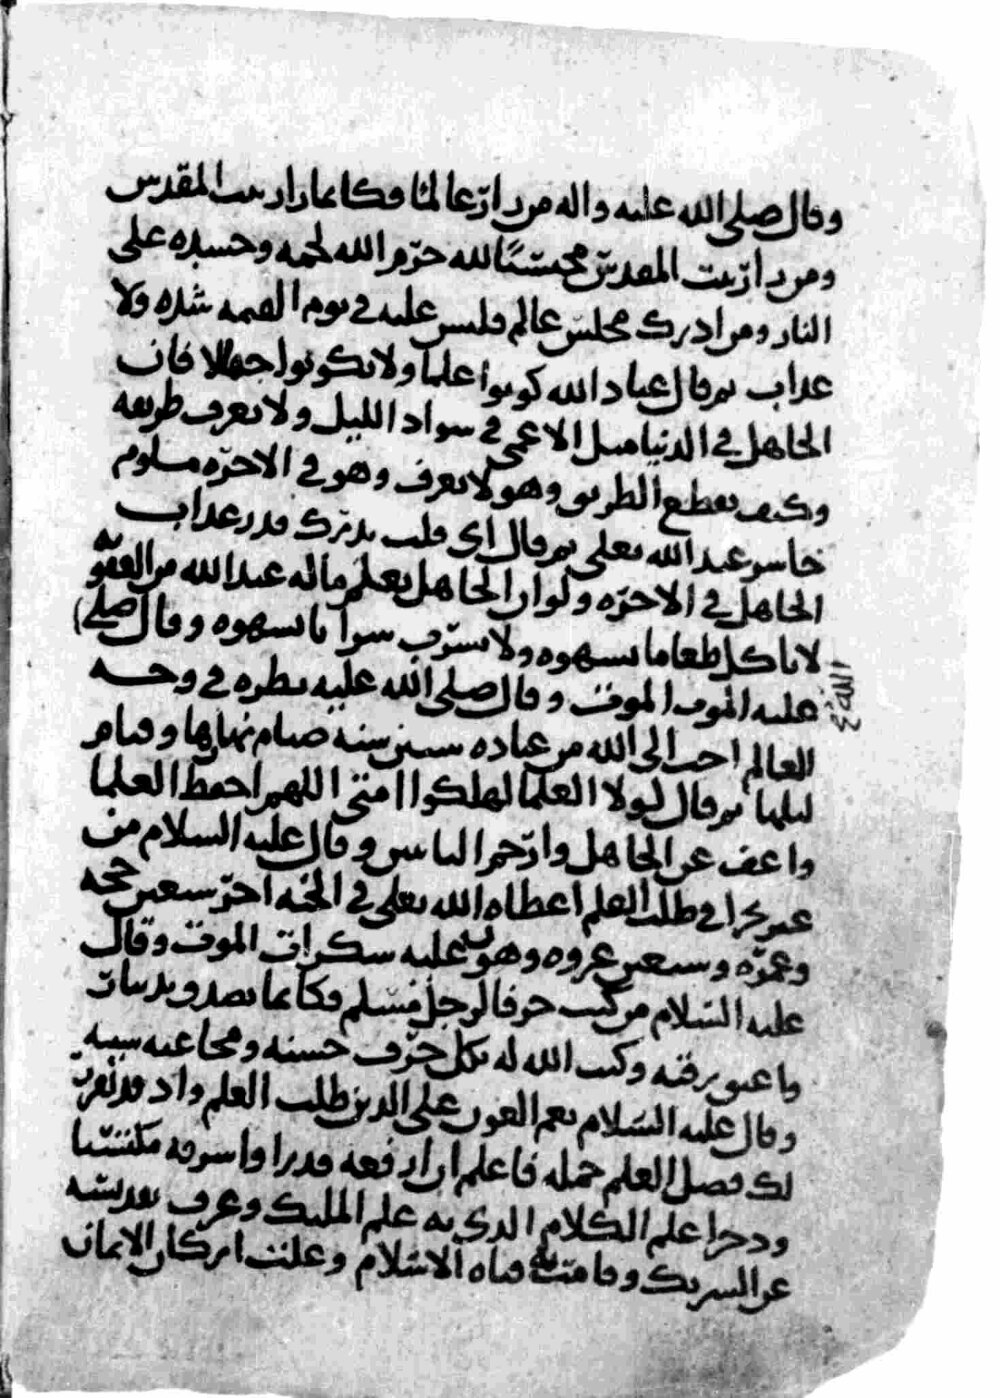 وقال صلى الله عليه واله من زار عالما فكانما زار بيت المقدس
ومن زار بيت المقدس محتسبا لله حرم الله لحمه وجسده على
النار ومن ادرك مجلس عالم فليس عليه في يوم القيمة شدة ولا
عذاب ثم قال عباد الله كونوا علما ولا تكونوا جهالا فان
الجاهل في الدنيا مثل الاعمى في سواد الليل ولا يعرف طريقه
وكيف يقطع الطريق وهو لا يعرف وهو في الاخرة ملوم
خاسر عند الله تعلى ثم قال اي قلب يدرك قدر عذاب
الجاهل في الاخرة ولو ان الجاهل يعلم ماله عند الله من العقوبه
لا ياكل طعاما بشهوه ولا يشرب شرابا بشهوه وقال صلى
الله ع
عليه الموت الموت وقال صلى الله عليه نظره في وجه
العالم احب الى الله من عباده ستين سنة صيام نهارها وقيام
ليلها ثم قال لولا العلما لهلكوا امتي اللهم احفظ العلما
واعف عن الجاهل وارحم الناس وقال عليه السلام من
في طلب العلم اعطاه الله تعلى في الجنة اجر سبعين حجه
وعمرة وسبعين غزوه وهون عليه سكرات الموت وقال
عليه السلام من كتب حرفا لرجل مسلم فكانما تصدق بدينار
واعتق رقبه وكتب الله له بكل حرف حسنة ومحا عنه سيه
وقال عليه السلام نعم العون على الدين طلب العلم واذ قد تقرر
لك فضل العلم جمله فاعلم ان ارفعه قدرا واشرفه
ودخرا علم الكلام الذي به علم المليك وعرف تقديسه
عن الشريك وقامت به قناه الاسلام وعلت اركان الايمان